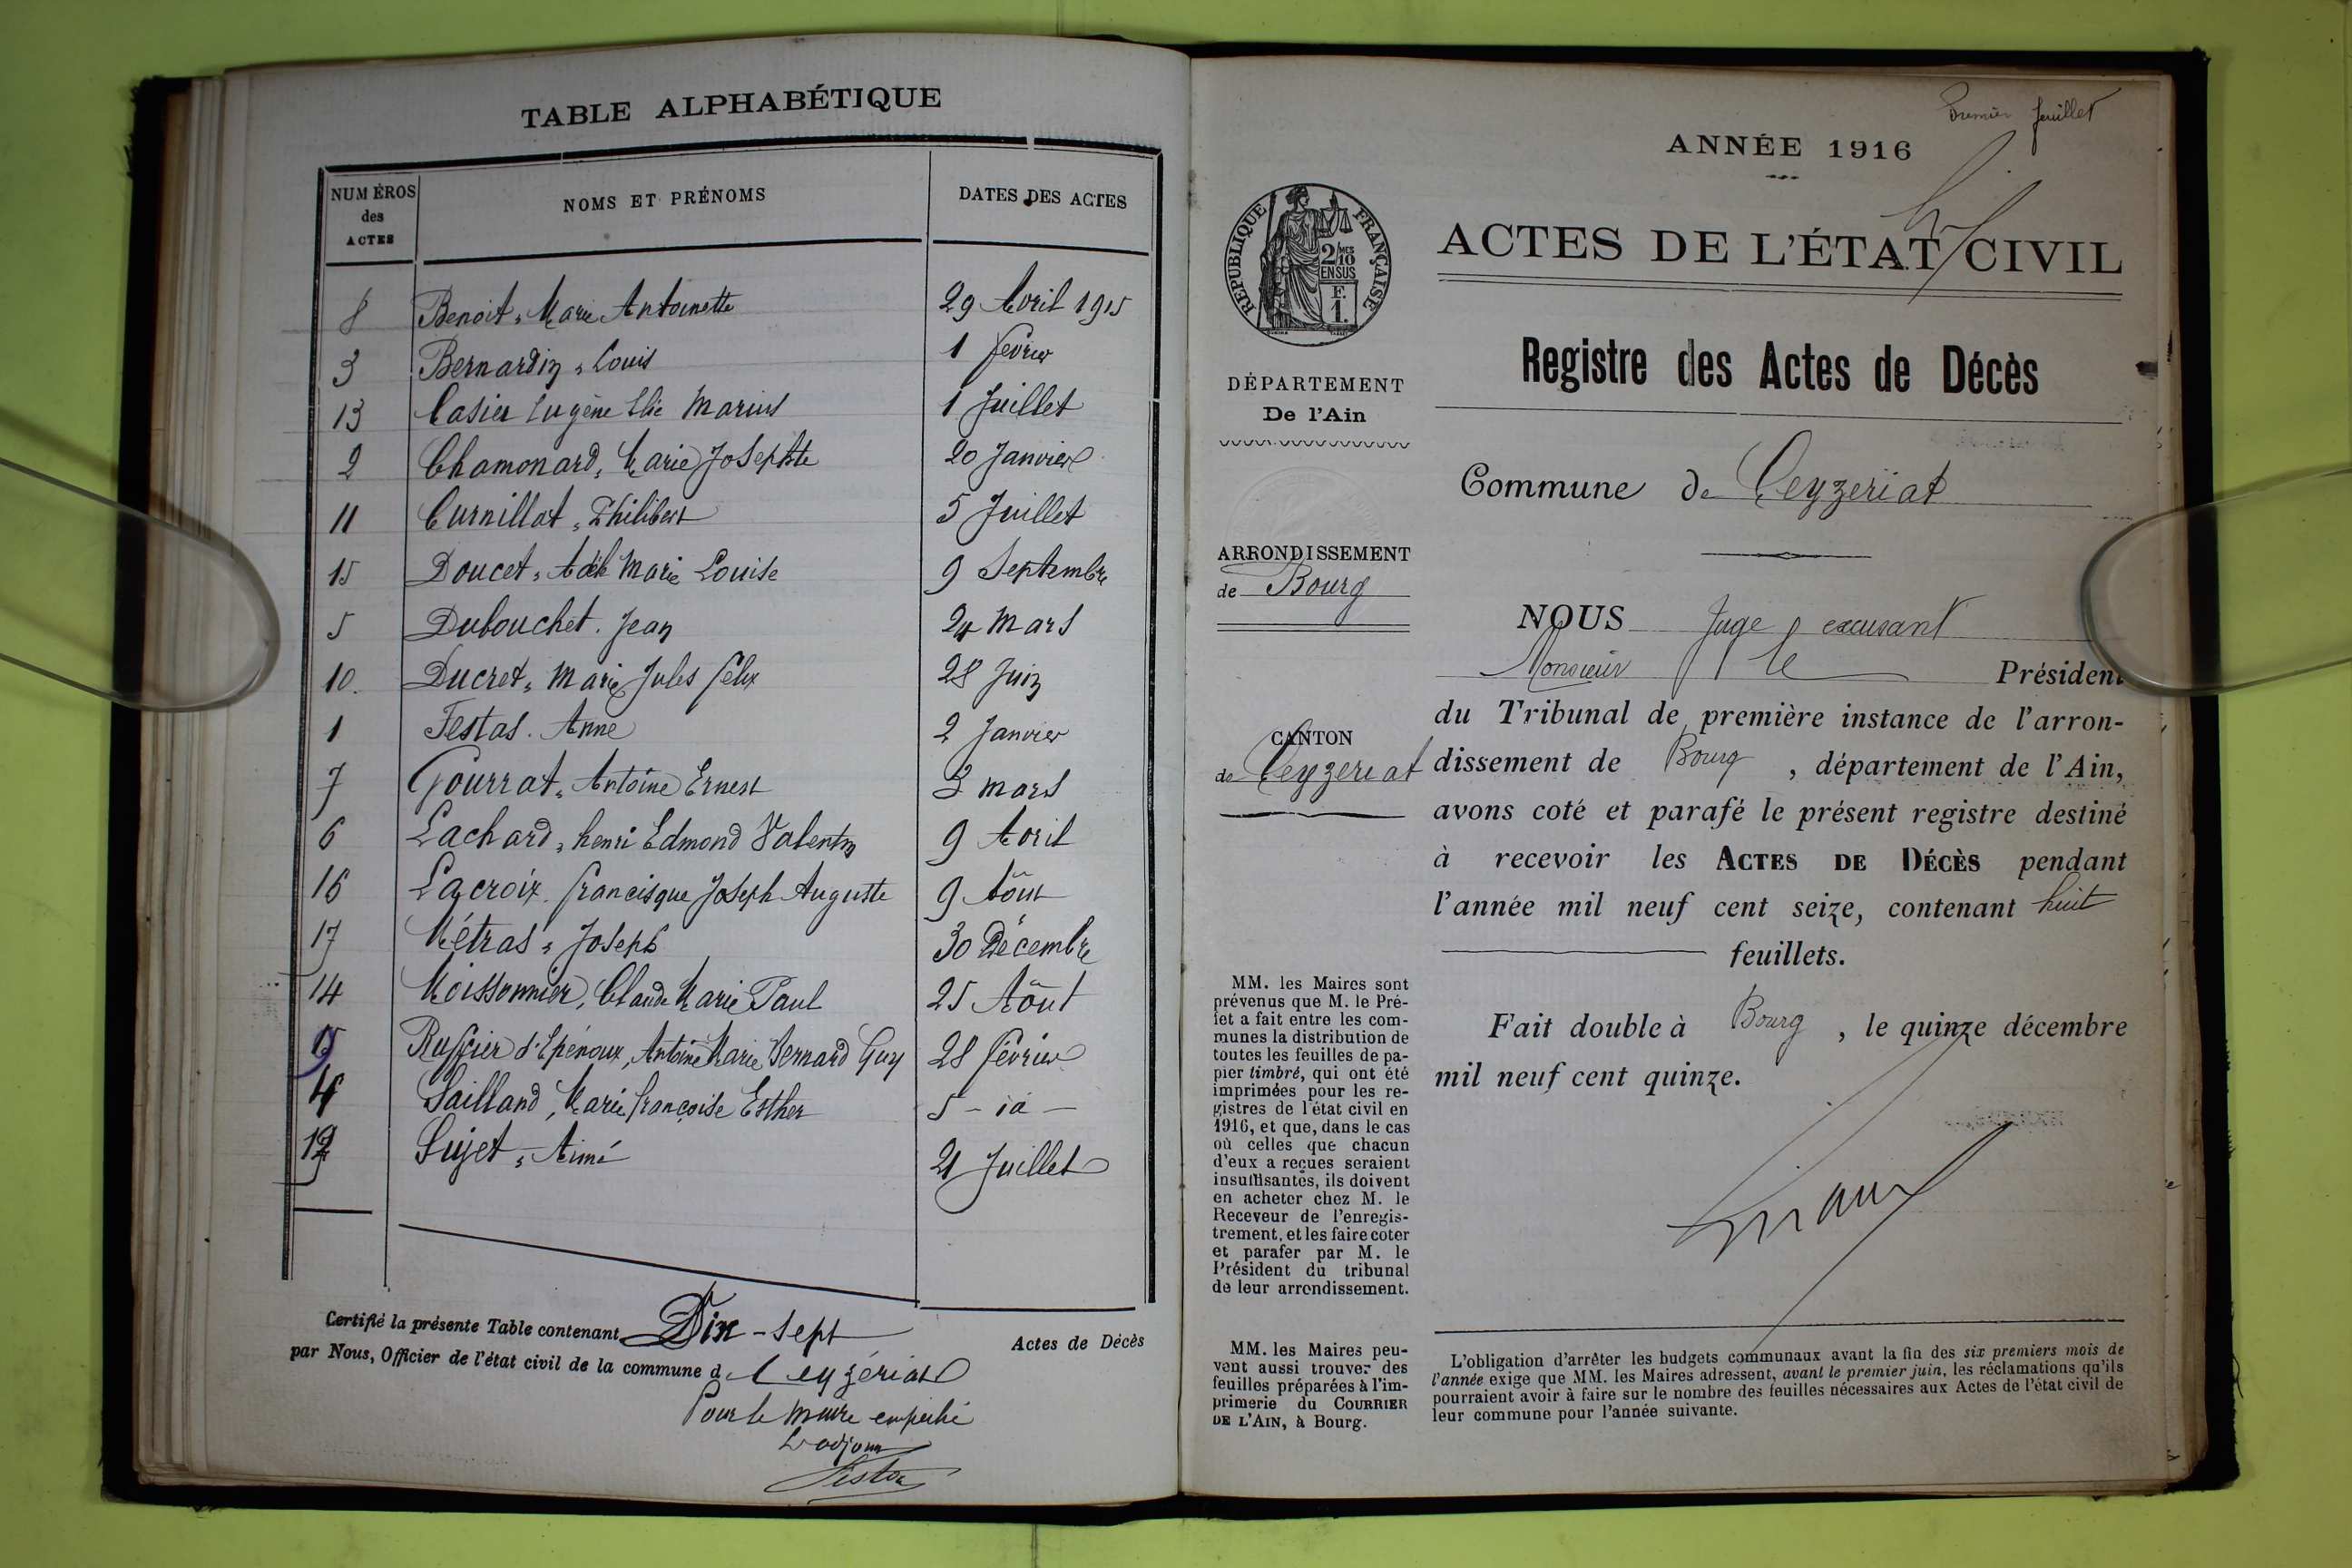 TABLE ALPHABÉTIQUE
NUMÉROS des ACTES NOMS ET PRÉNOMS DATES DES ACTES
8 Benoit, Marie Antoinette 29 Avril 1915
3 Bernardin, Louis 1 février
13 Casier Eugène Elie Marius 1 Juillet
2 Chamonard, Marie Josephte 20 Janvier
11 Curnillat, Philibert 5 Juillet
15 Doucet, Adèle Marie Louise 9 Septembre
5 Dubouchet. Jean 24 Mars
10. Ducret, Marie Jules félix 28 Juin
1 Festas. Anne 2 Janvier
7 Gourrat, Antoine Ernest 3 mars
6 Lachard, henri Edmond Valentin 9 Avril
16 Lacroix. francisque Joseph Auguste 9 Aôut
17 Métras, Joseph 30 Décembre
14 Moissonnier, Claude Marie Paul 25 Aôut
Ruffier d'Epenoux, Antoine Marie Bernard Guy 28 février
4 Sailland, Marie françoise Esther 5 - id -
12 Sujet, Aimé 21 Juillet
Certifié la présente Table contenant Dix-sept Actes de Décès
par Nous, Officier de l'état civil de la commune d Ceyzériat
Pour le maire empêché
L'adjoint
Premier feuillet
ANNÉE 1916
ACTES DE L'ÉTAT CIVIL
RÉPUBLIQUE FRANÇAISE
2/10 MES
EN SUS
F.
1.
Registre des Actes de Décès
DÉPARTEMENT
De l'Ain
Commune de Ceyzériat
ARRONDISSEMENT
de Bourg
CANTON
de Ceyzeriat
NOUS Juge excusant
Monsieur le Président
du Tribunal de première instance de l'arron-
dissement de Bourg, département de l'Ain,
avons coté et parafé le présent registre destiné
à recevoir les ACTES DE DÉCÈS pendant
l'année mil neuf cent seize, contenant huit
feuillets.
Fait double à Bourg, le quinze décembre
mil neuf cent quinze.
MM. les Maires sont
prévenus que M. le Pré-
fet a fait entre les com-
munes la distribution de
toutes les feuilles de pa-
pier timbré, qui ont été
imprimées pour les re-
gistres de l'état civil en
1916, et que, dans le cas
où celles que chacun
d'eux a reçues seraient
insuffisantes, ils doivent
en acheter chez M. le
Receveur de l'enregis-
trement, et les faire coter
et parafer par M. le
Président du tribunal
de leur arrondissement.
MM. les Maires peu-
vent aussi trouver des
feuilles préparées à l'im-
primerie du COURRIER
DE L'AIN, à Bourg.
L'obligation d'arrêter les budgets communaux avant la fin des six premiers mois de
l'année exige que MM. les Maires adressent, avant le premier juin, les réclamations qu'ils
pourraient avoir à faire sur le nombre des feuilles nécessaires aux Actes de l'état civil de
leur commune pour l'année suivante.